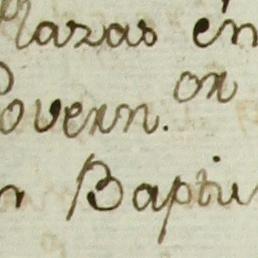 Plazas en
Govern.or
n Baptis